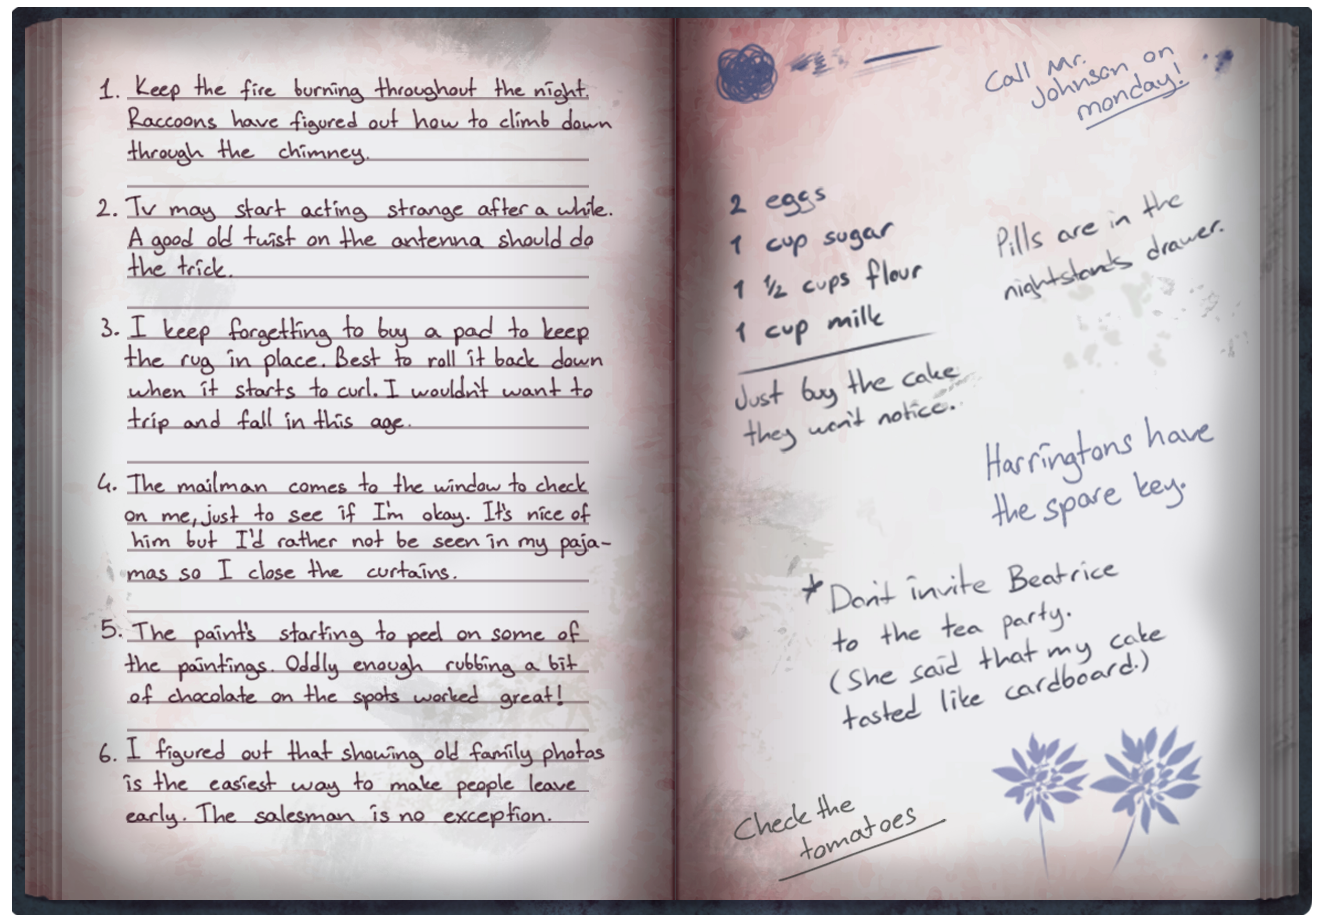 1. Keep the fire burning throughout the night.
Raccoons have figured out how to climb down
through the chimney.
2. Tv may start acting strange after a while.
A good old twist on the antenna should do
the trick.
3. I keep forgetting to buy a pad to keep
the rug in place. Best to roll it back down
when it starts to curl. I wouldn't want to
trip and fall in this age.
4. The mailman comes to the window to check
on me, just to see if I'm okay. It's nice of
him but I'd rather not be seen in my paja-
mas so I close the curtains.
5. The paint's starting to peel on some of
the paintings. Oddly enough rubbing a bit
of chocolate on the spots worked great!
6. I figured out that showing old family photos
is the easiest way to make people leave
early. The salesman is no exception.
Call Mr.
Johnson on
monday!
2 eggs
1 cup sugar
1 1/2 cups flour
1 cup milk
Just buy the cake
they won't notice.
Pills are in the
nightstands drawer.
Harringtons have
the spare key.
* Don't invite Beatrice
to the tea party.
(She said that my cake
tasted like cardboard.)
Check the
tomatoes